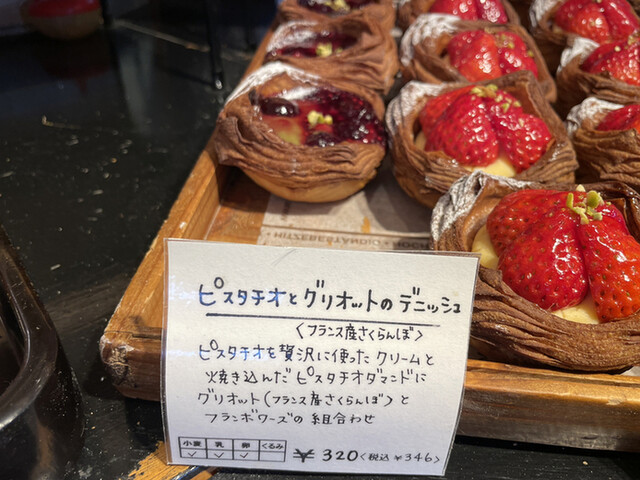 HITZEBESTÄNDIG
ピスタチオとグリオットのデニッシュ
〈フランス産さくらんぼ〉
ピスタチオを贅沢に使ったクリームと
焼き込んだピスタチオダマンドに
グリオット(フランス産さくらんぼ)と
フランボワーズの組合わせ
小麦 乳 卵 くるみ
✓ ✓ ✓
¥320〈税込 ¥346〉